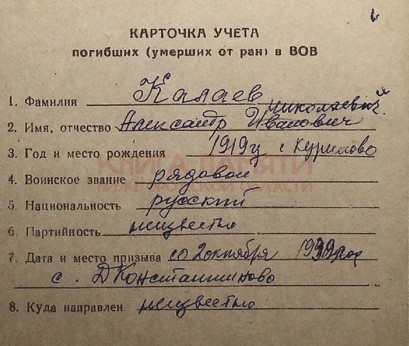 КАРТОЧКА УЧЕТА
погибших (умерших от ран) в ВОВ
1. Фамилия Калаев
Николаевич
2. Имя, отчество Александр Иванович
3. Год и место рождения 1919 г. с Курилово
4. Воинское звание рядовой
5. Национальность русский
6. Партийность неизвестно
7. Дата и место призыва со 2 октября 1939 год
с. Константиново
8. Куда направлен неизвестно